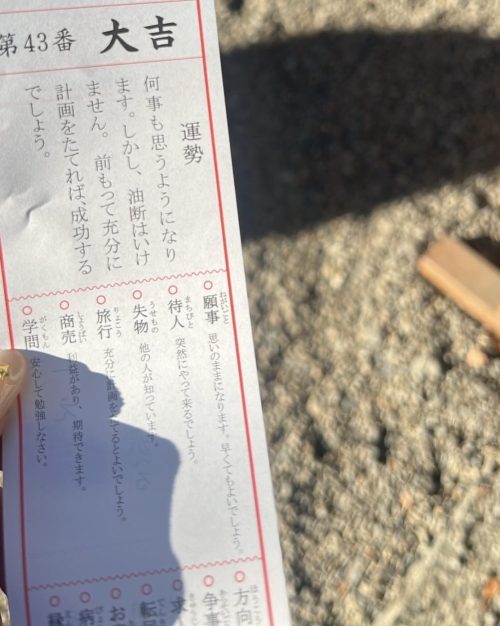 第43番 大吉
運勢
何事も思うようになり
ます。しかし、油断はいけ
ません。前もって充分に
計画をたてれば、成功する
でしょう。
○願事 思いのままになります。早くてもよいでしょう。
○待人 突然にやって来るでしょう。
○失物 他の人が知っています。
○旅行 充分に計画をたてるとよいでしょう。
○商売 利益があり、期待できます。
○学問 安心して勉強しなさい。
○方向
○争事
○求
○転居
○お
○病
○縁